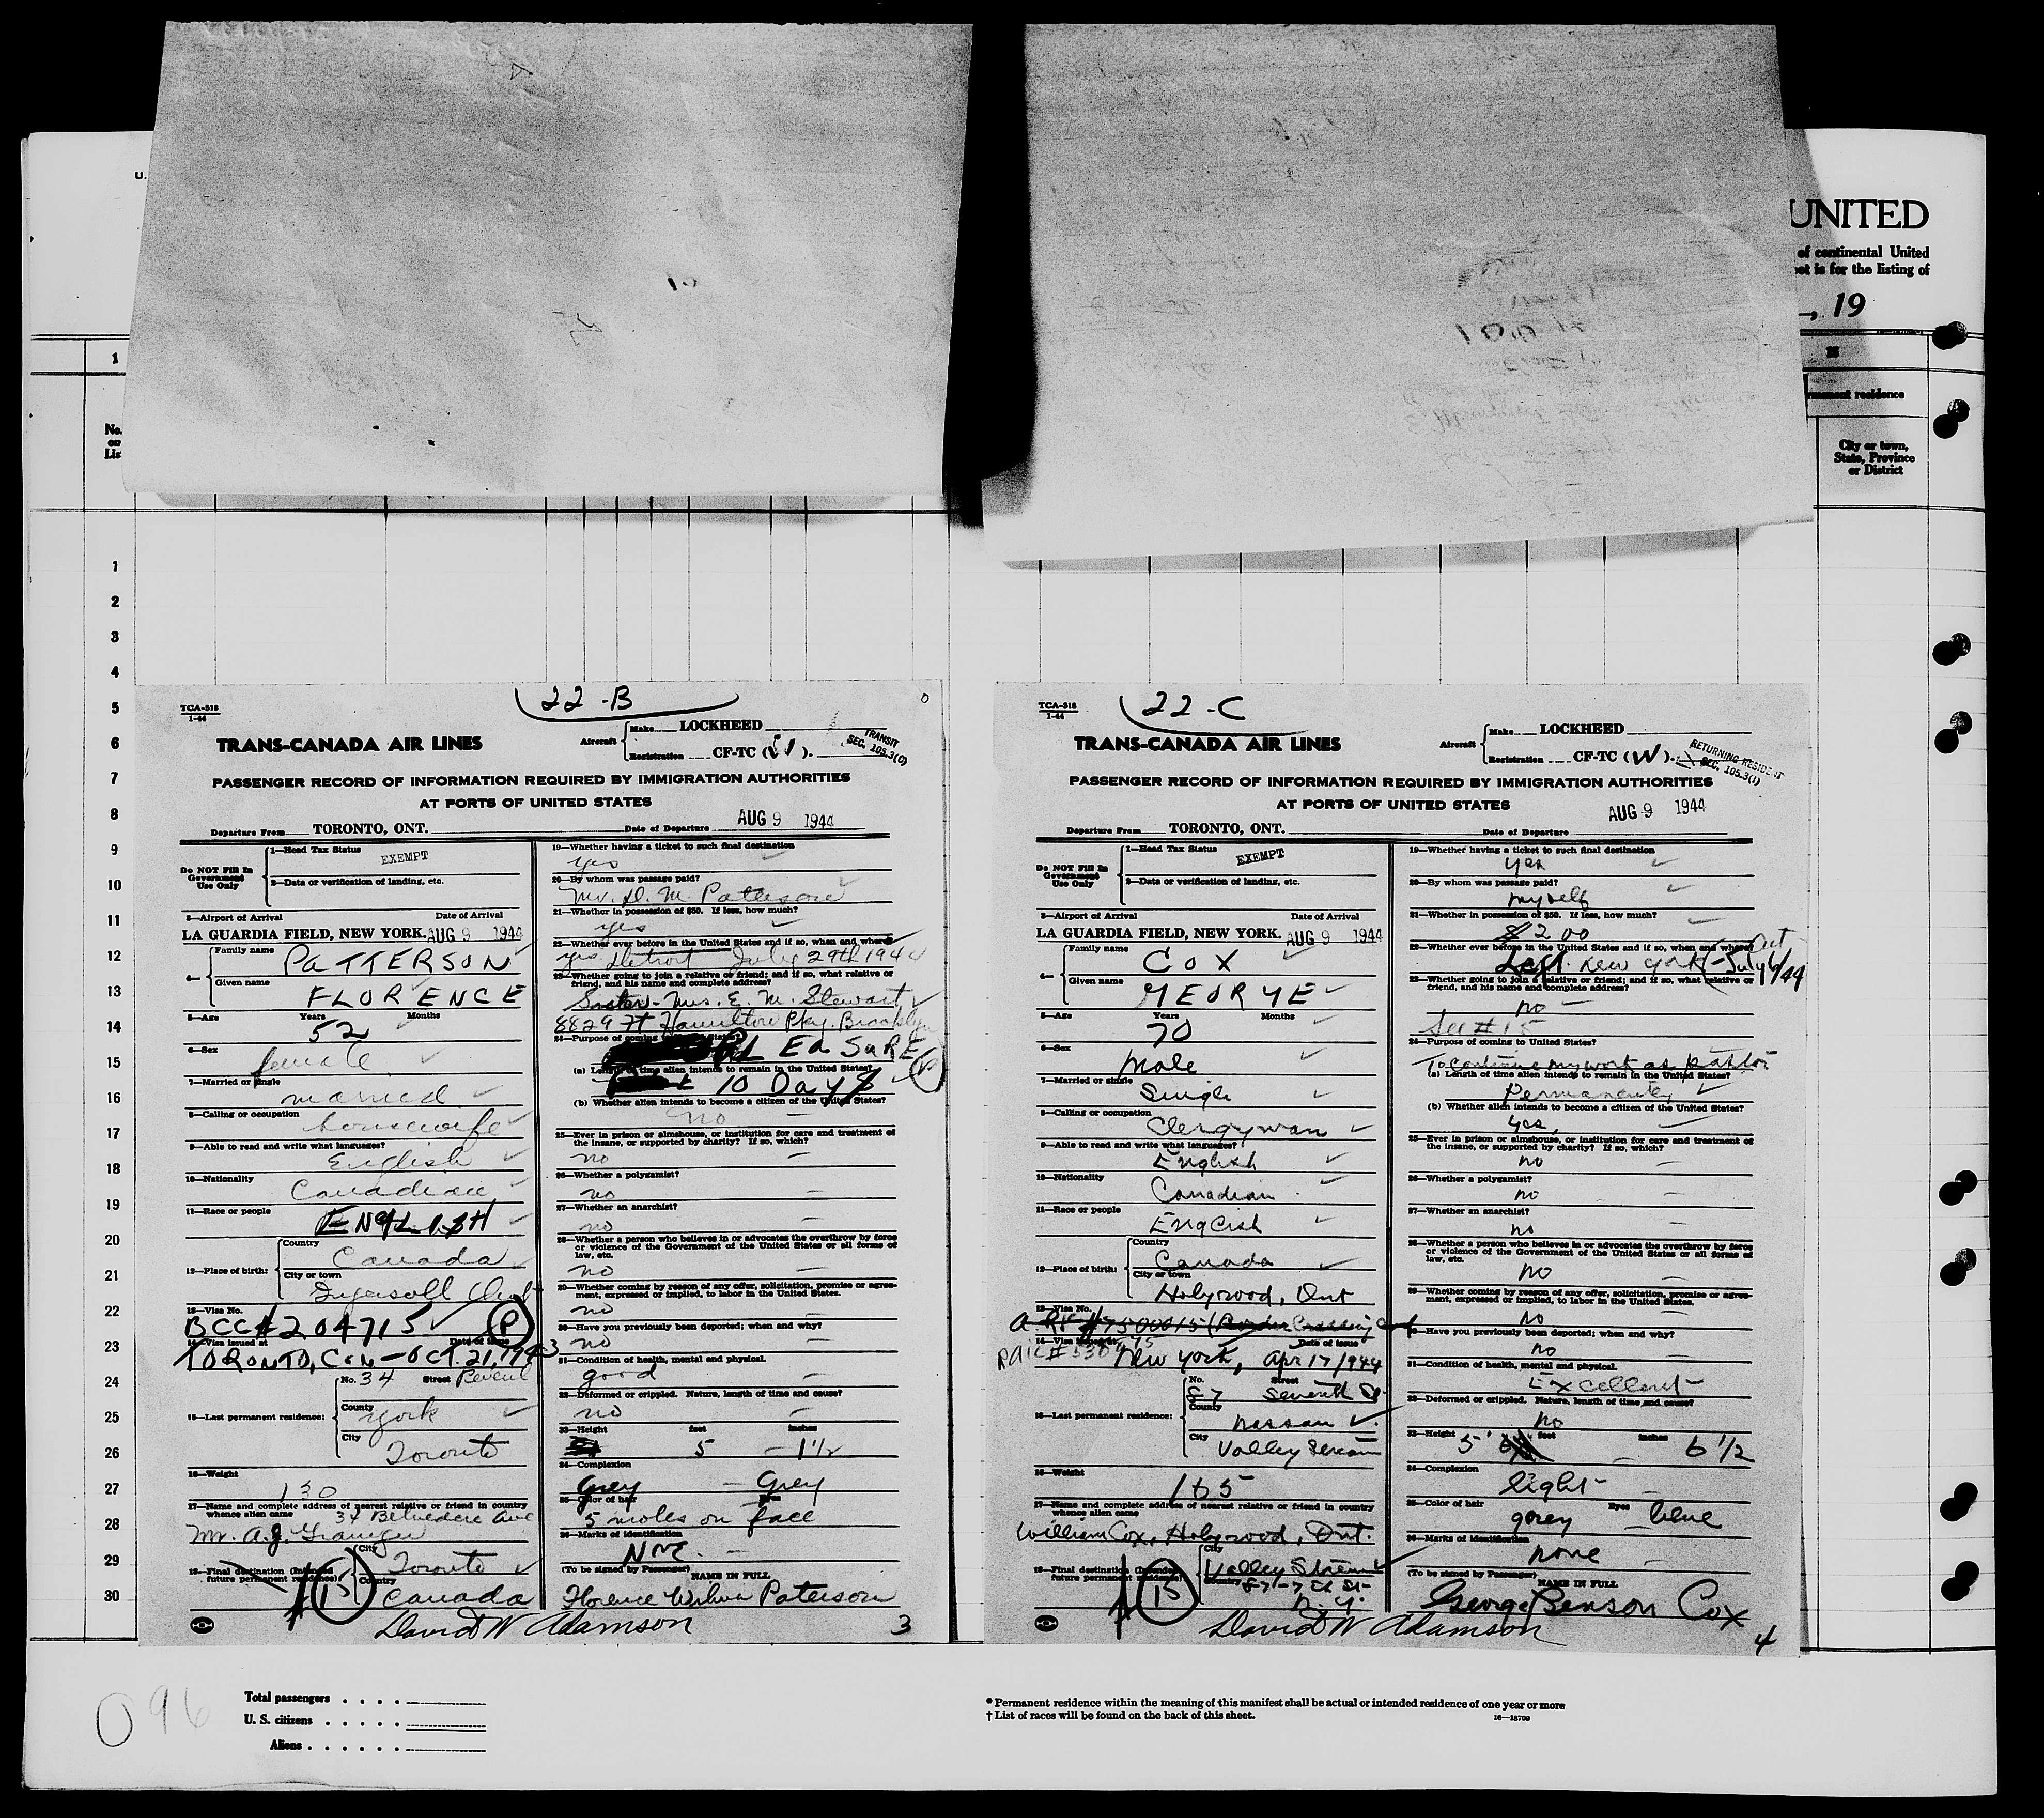 U.
UNITED
of continental United
is for the listing of
, 19
1
No.
on
Lis
City or town,
State, Province
or District
1
2
3
4
5
6
7
8
9
10
11
12
13
14
15
16
17
18
19
20
21
22
23
24
25
26
27
28
29
30
22-B
TCA-318
1-44
TRANS-CANADA AIR LINES
Aircraft
Make LOCKHEED
Registration CF-TC ( ).
TRANSIT
SEC. 105.3(C)
PASSENGER RECORD OF INFORMATION REQUIRED BY IMMIGRATION AUTHORITIES
AT PORTS OF UNITED STATES
Departure From TORONTO, ONT. Date of Departure AUG 9 1944
Do NOT Fill In
Government
Use Only
1—Head Tax Status
EXEMPT
2—Data or verification of landing, etc.
3—Airport of Arrival Date of Arrival
LA GUARDIA FIELD, NEW YORK. AUG 9 1944
4—
Family name
PATTERSON
Given name
FLORENCE
5—Age Years Months
52
6—Sex
female
7—Married or single
married
8—Calling or occupation
housewife
9—Able to read and write what languages?
English
10—Nationality
Canadian
11—Race or people
ENGLISH
12—Place of birth:
Country
Canada
City or town
Ingersoll Ont
13—Visa No.
BCC#204715 P
14—Visa issued at Date of issue
TORONTO, CAN-OCT. 21, 1943
15—Last permanent residence:
No. 34 Street
County
York
City
Toronto
16—Weight
130
17—Name and complete address of nearest relative or friend in country
whence alien came 34 Belvedere Ave
Mr. A.J. Granger
18—Final destination (Intended
future permanent residence)
City
Toronto
Country
Canada
15
19—Whether having a ticket to such final destination
yes
20—By whom was passage paid?
Mr. D. M. Patterson
21—Whether in possession of $50. If less, how much?
yes
22—Whether ever before in the United States and if so, when and where?
yes. Detroit July 29th 1944
23—Whether going to join a relative or friend; and if so, what relative or
friend, and his name and complete address?
Sister- Mrs. E. M. Stewart
8829 Ft Hamilton Pky. Brooklyn
24—Purpose of coming to United States?
PLEASURE
(a) Length of time alien intends to remain in the United States?
10 Days
(b) Whether alien intends to become a citizen of the United States?
no
25—Ever in prison or almshouse, or institution for care and treatment of
the insane, or supported by charity? If so, which?
no
26—Whether a polygamist?
no
27—Whether an anarchist?
no
28—Whether a person who believes in or advocates the overthrow by force
or violence of the Government of the United States or all forms of
law, etc.
no
29—Whether coming by reason of any offer, solicitation, promise or agree-
ment, expressed or implied, to labor in the United States.
no
30—Have you previously been deported; when and why?
no
31—Condition of health, mental and physical.
good
32—Deformed or crippled. Nature, length of time and cause?
no
33—Height feet inches
5 - 1½
34—Complexion
Grey - Grey
35—Color of hair Eyes
5 moles on face
36—Marks of identification
(To be signed by Passenger) NAME IN FULL
Florence Wilma Paterson
David W Adamson
3
22-C
TCA-318
1-44
TRANS-CANADA AIR LINES
Aircraft
Make LOCKHEED
Registration CF-TC (W).
RETURNING RESIDENT
SEC. 105.3(1)
PASSENGER RECORD OF INFORMATION REQUIRED BY IMMIGRATION AUTHORITIES
AT PORTS OF UNITED STATES
Departure From TORONTO, ONT. Date of Departure AUG 9 1944
Do NOT Fill In
Government
Use Only
1—Head Tax Status
EXEMPT
2—Data or verification of landing, etc.
3—Airport of Arrival Date of Arrival
LA GUARDIA FIELD, NEW YORK. AUG 9 1944
4—
Family name
COX
Given name
GEORGE
5—Age Years Months
70
6—Sex
Male
7—Married or single
Single
8—Calling or occupation
Clergyman
9—Able to read and write what languages?
English
10—Nationality
Canadian
11—Race or people
English
12—Place of birth:
Country
Canada
City or town
Holyrood, Ont
13—Visa No.
(Border Crossing Card
14—Visa issued at Date of issue
New York, Apr 17/944
15—Last permanent residence:
No. Street
87 Seventh St
County
Nassau
City
Valley Stream
16—Weight
165
17—Name and complete address of nearest relative or friend in country
whence alien came
William Cox, Holyrood, Ont.
18—Final destination (Intended
future permanent residence)
City
Valley Stream
Country 87-7th St-
N.Y.
15
19—Whether having a ticket to such final destination
yes
20—By whom was passage paid?
myself
21—Whether in possession of $50. If less, how much?
$200
22—Whether ever before in the United States and if so, when and where?
Left New York - July 6/44
23—Whether going to join a relative or friend; and if so, what relative or
friend, and his name and complete address?
no
See #15
24—Purpose of coming to United States?
To continue my work as pastor
(a) Length of time alien intends to remain in the United States?
Permanently
(b) Whether alien intends to become a citizen of the United States?
yes,
25—Ever in prison or almshouse, or institution for care and treatment of
the insane, or supported by charity? If so, which?
no
26—Whether a polygamist?
no
27—Whether an anarchist?
no
28—Whether a person who believes in or advocates the overthrow by force
or violence of the Government of the United States or all forms of
law, etc.
no
29—Whether coming by reason of any offer, solicitation, promise or agree-
ment, expressed or implied, to labor in the United States.
no
30—Have you previously been deported; when and why?
no
31—Condition of health, mental and physical.
Excellent
32—Deformed or crippled. Nature, length of time and cause?
no
33—Height feet inches
5' 6 1/2
34—Complexion
light
35—Color of hair Eyes
grey - blue
36—Marks of identification
none
(To be signed by Passenger) NAME IN FULL
George Benson Cox
David W Adamson
4
096
Total passengers
U. S. citizens
Aliens
* Permanent residence within the meaning of this manifest shall be actual or intended residence of one year or more
† List of races will be found on the back of this sheet.
16—18709